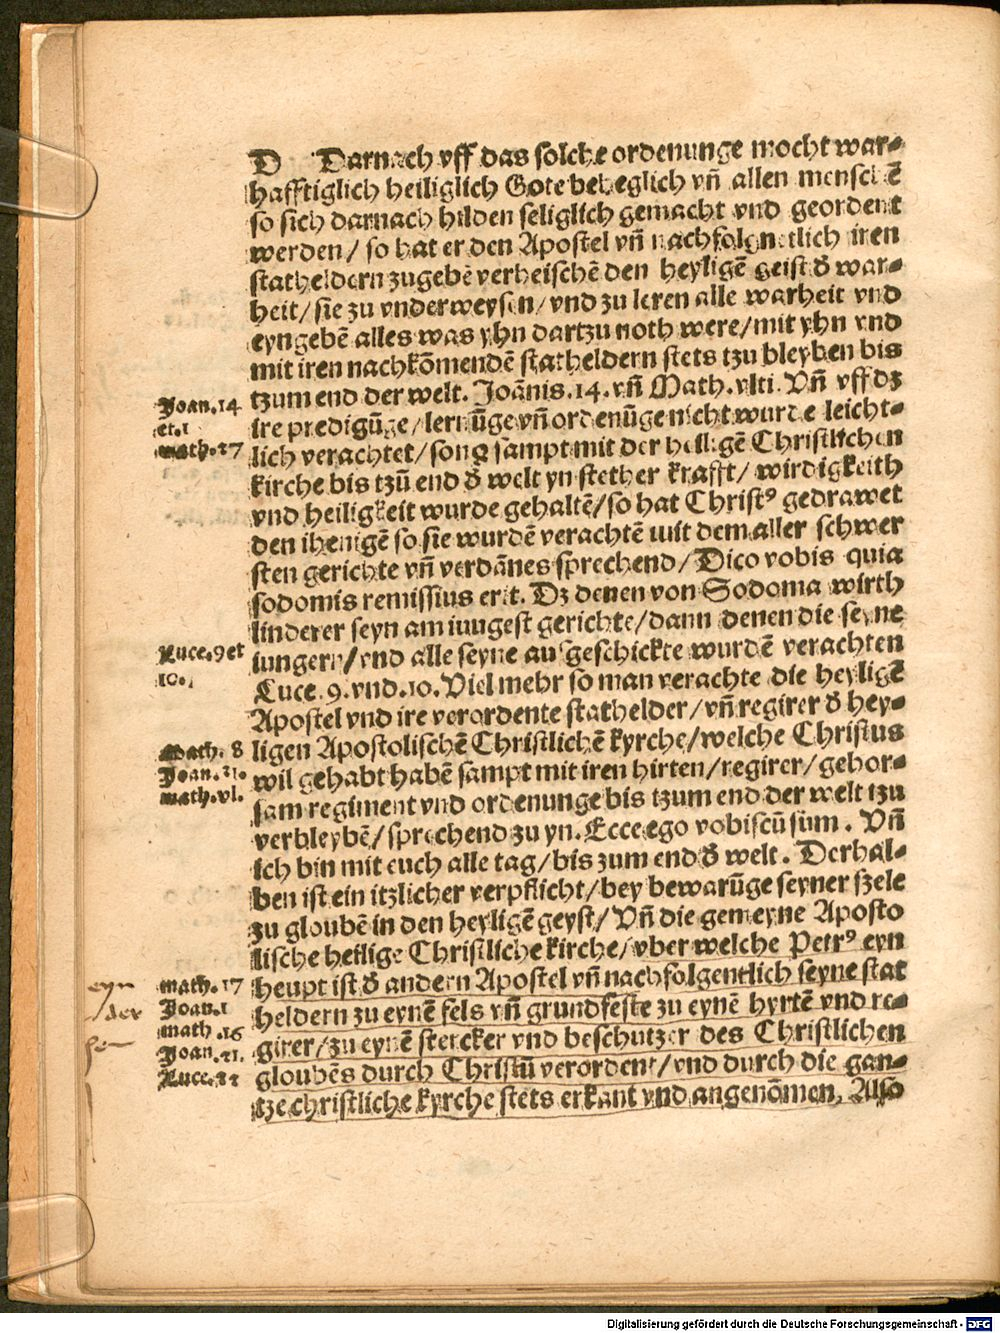 D Darnach vff das solche ordenunge mocht war-
hafftiglich heiliglich Gote beheglich vñ allen menschē
so sich darnach hilden seliglich gemacht vnd geordent
werden/ so hat er den Apostel vñ nachfolgentlich iren
statheldern zugebē verheischē den heyligē geist d̄ war-
heit/ sie zu vnderweysen/ vnd zu leren alle warheit vnd
eyngebē alles was yhn dartzu noth were/ mit yhn vnd
mit iren nachkōmendē statheldern stets tzu bleyben bis
tzum end der welt. Joānis.14. vñ Math. vlti. Vñ vff dz
Joan.14
et.1
ire predigūge/ lernūge vñ ordenūge nicht wurde leicht-
math.27
lich verachtet/ sond̄ sampt mit der heiligē Christlichen
kirche bis tzū end d̄ welt yn stether krafft/ wirdigkeith
vnd heiligkeit wurde gehaltē/ so hat Christꝰ gedrawet
den ihenigē so sie wurdē verachtē mit dem aller schwer
sten gerichte vñ verdānes sprechend/ Dico vobis quia
sodomis remissius erit. Dz denen von Sodoma wirth
linderer seyn am iungest gerichte/ dann denen die seyne
Luce.9 et
10.
iungern/ vnd alle seyne ausgeschickte wurdē verachten
Luce.9.vnd.10. Viel mehr so man verachte die heyligē
Apostel vnd ire verordente stathelder/ vñ regirer d̄ hey-
Math. 8
ligen Apostolischē Christlichē kyrche/ welche Christus
Joan.21.
wil gehabt habē sampt mit iren hirten/ regirer/ gehor-
math.vl.
sam regiment vnd ordenunge bis tzum end der welt tzu
verbleybē/ sprechend zu yn. Ecce ego vobiscū sum. Vñ
ich bin mit euch alle tag/ bis zum end d̄ welt. Derhal-
ben ist ein itzlicher verpflicht/ bey bewarūge seyner szele
zu gloubē in den heyligē geyst/ Vñ die gemeyne Aposto
lische heilige Christliche kirche/ vber welche Petrꝰ eyn
math.17
heupt ist d̄ andern Apostel vñ nachfolgentlich seyne stat
Joan.1
heldern zu eynē fels vñ grundfeste zu eynē hyrtē vnd re-
math.16
girer/ zu eynē stercker vnd beschutzer des Christlichen
Joan.21.
gloubēs durch Christū verordent/ vnd durch die gan-
Luce.22
tze christliche kyrche stets erkant vnd angenōmen, Also
eyn
der
Digitalisierung gefördert durch die Deutsche Forschungsgemeinschaft - DFG